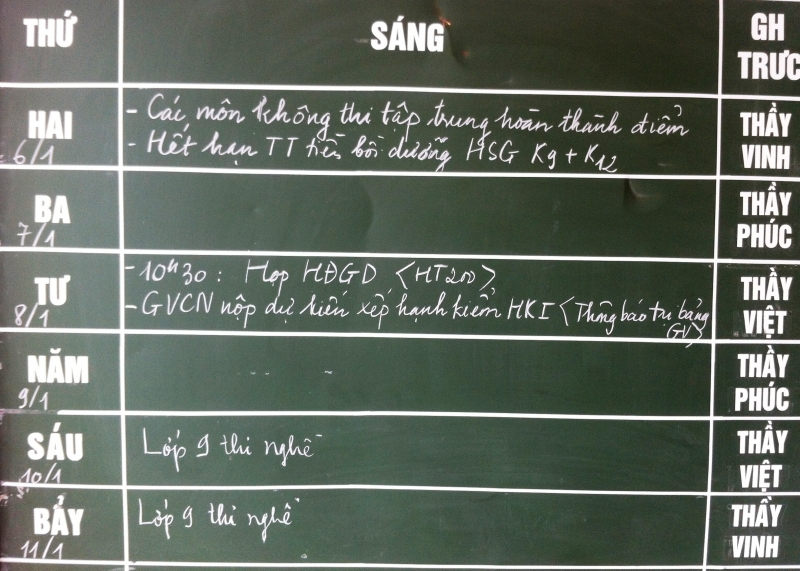 THỨ SÁNG GH TRƯC
HAI 6/1 - Các môn không thi tập trung hoàn thành điểm THẦY VINH
- Hết hạn TT tiền bồi dưỡng HSG K9 + K12
BA 7/1 THẦY PHÚC
TƯ 8/1 - 10h30 : Họp HĐGD <HT200> THẦY VIỆT
- GVCN nộp dự kiến xếp hạnh kiểm HKI <Thông báo tại bảng GV>
NĂM 9/1 THẦY PHÚC
SÁU 10/1 Lớp 9 thi nghề THẦY VIỆT
BẢY 11/1 Lớp 9 thi nghề THẦY VINH